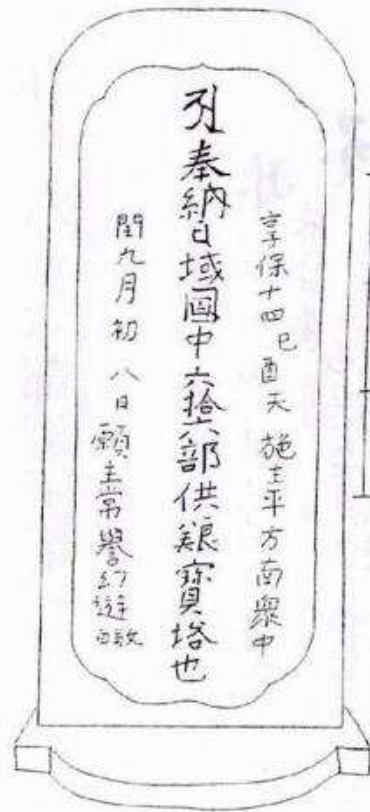 享保十四巳酉天 施主平方南衆中
奉納日域國中六拾六部供養寶塔也
閏九月初八日 願主常誉幻遊敬白